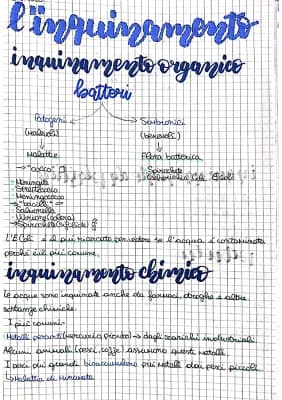 l'inquinamento
inquinamento organico
batteri
Patogeni Simbionici
(malevoli) (benevoli)
Malattie Flora batterica
→ "cocco" • Spirochete
• Meningite • Escherichia Coli
• Streptococco
• Meningococco
→ "bacilli"
• Salmonella
• Vibrione (colera)
→ Spirochete (sifilide)
L'E.Coli è il più ricercato per vedere se l'acqua è contaminata
perché è il più comune.
inquinamento chimico
Le acque sono inquinate anche da farmaci, droghe e altre
sostanze chimiche.
I più comuni:
Metalli pesanti (mercurio, piombo) → dagli scarichi industriali
Alcuni animali (pesci, cozze) assumono questi metalli.
I pesci più grandi bioaccumulano più metalli dai pesci piccoli
↳ Malattia di Minamata